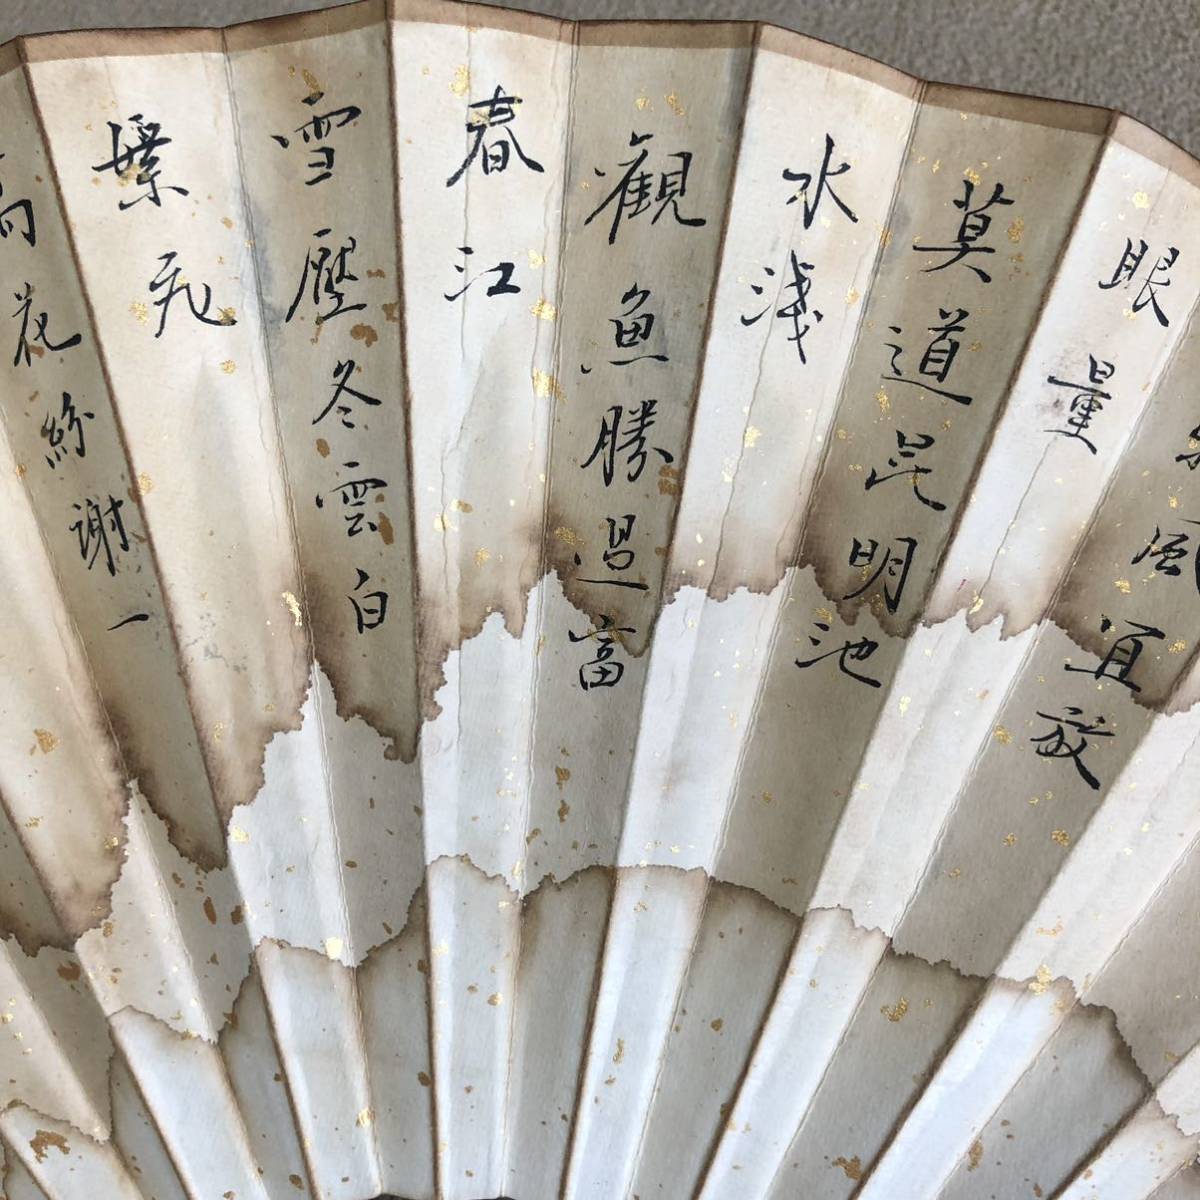 風宜放
眼量
莫道昆明池
水淺
觀魚勝過富
春江
雪壓冬雲白
絮飛
萬花紛謝一